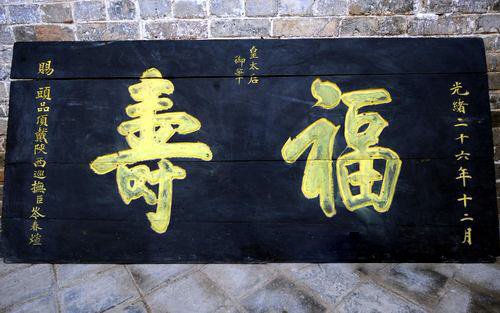 光緒二十六年十二月
福
皇太后
御筆
壽
賜
頭品頂戴陝西巡撫臣岑春煊